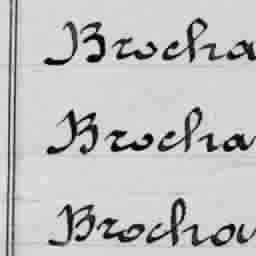 Brocha
Brocha
Brocha